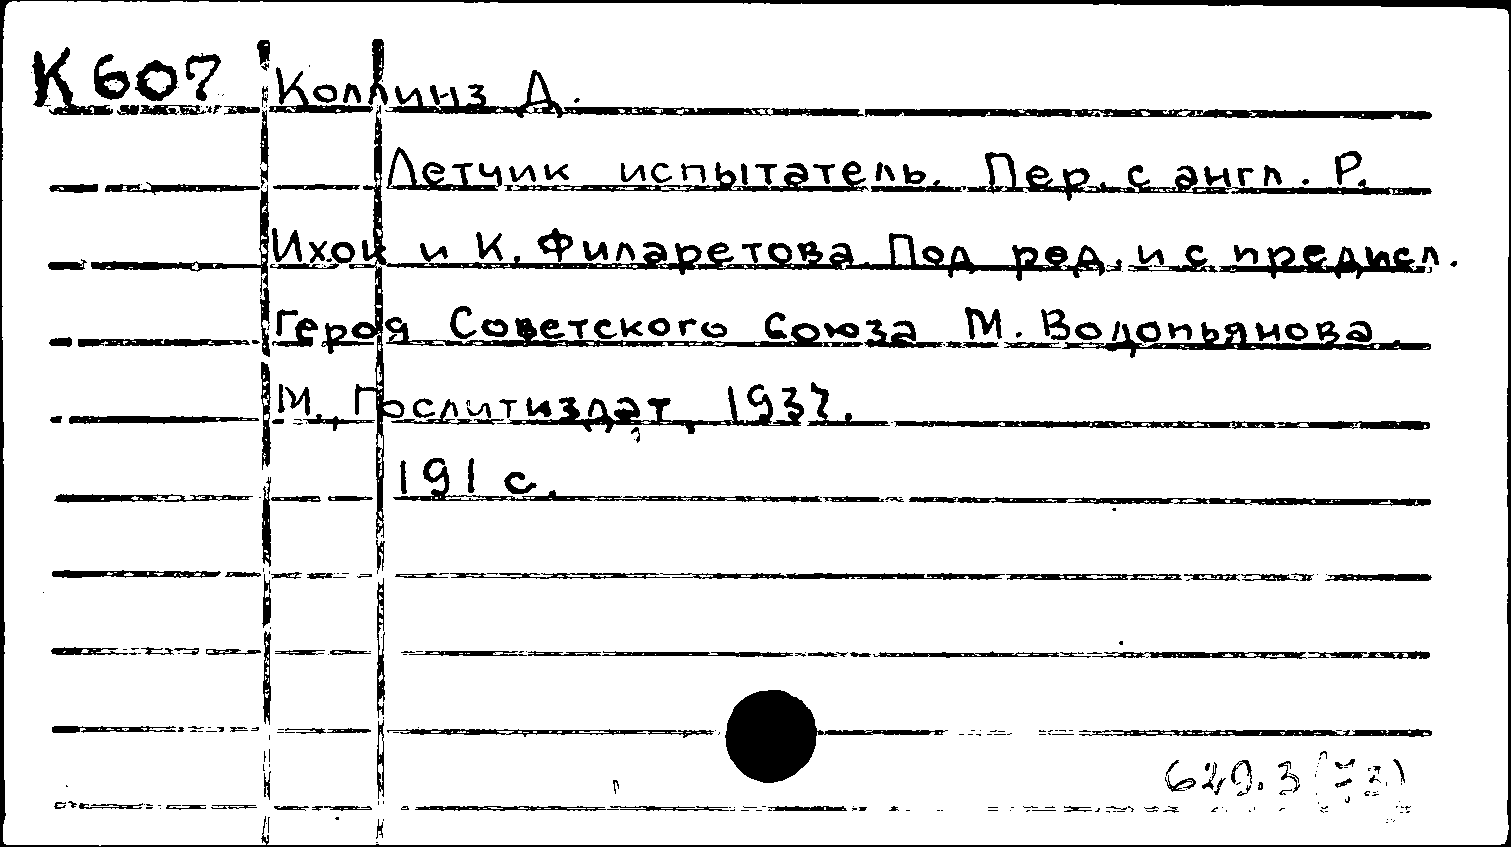 К 607 Коллинз Д.
Летчик испытатель. Пер. с англ. Р.
Ихок и К. Филаретова. Под ред. и с предисл.
Героя Советского Союза М. Водопьянова.
М., Гослитиздат, 1937.
191 с.
629.3(73)